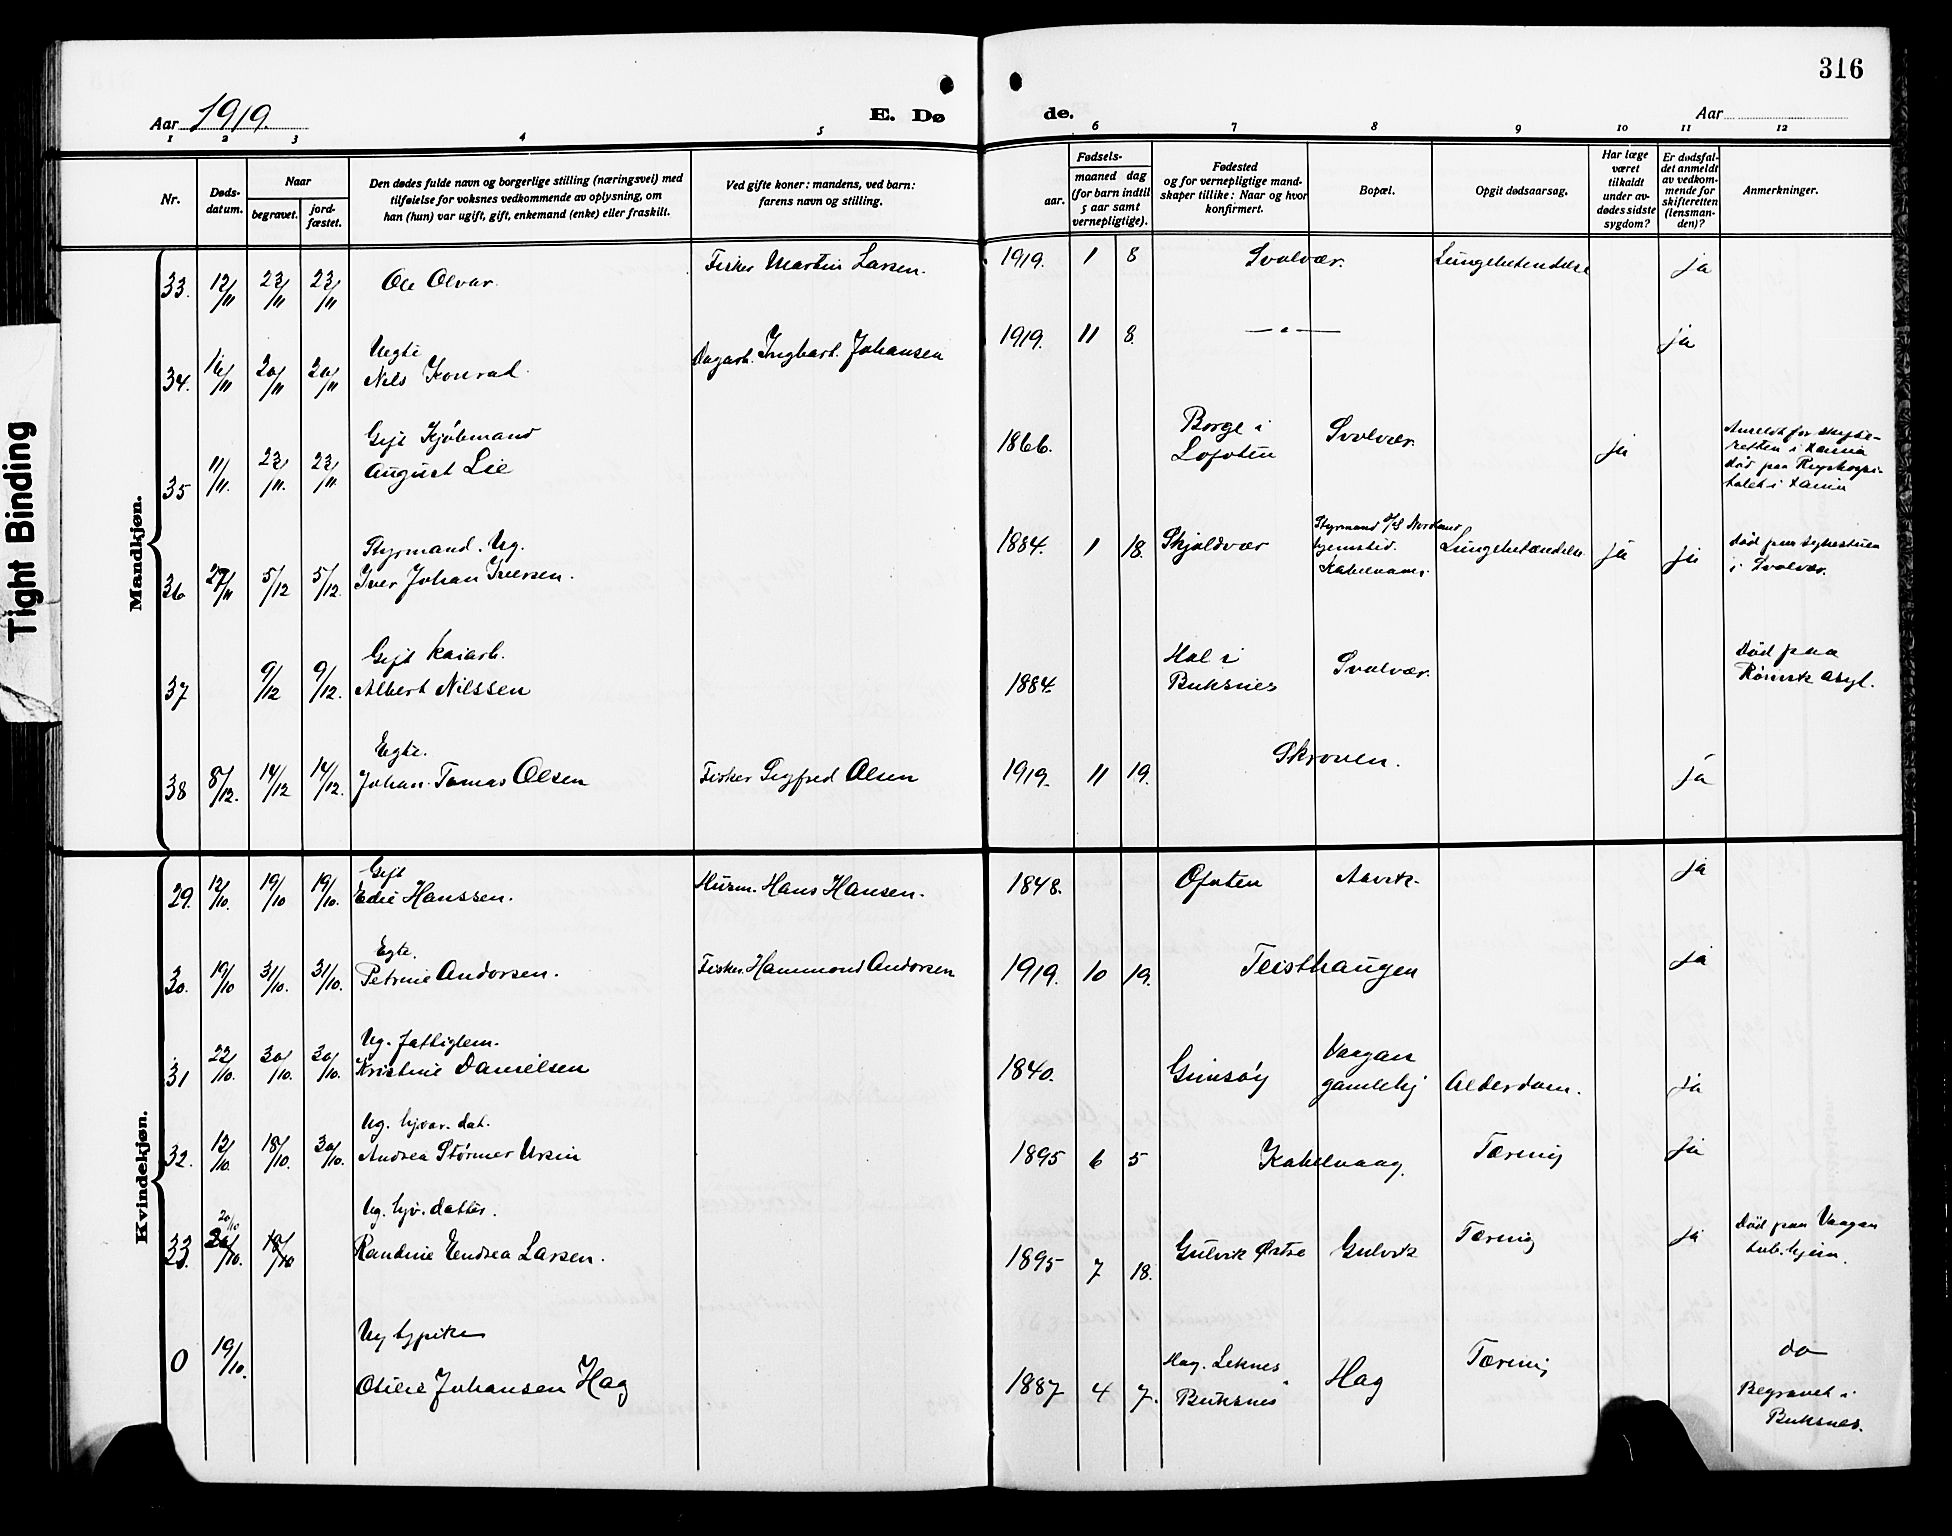 316
Aar 1919.
E. Dø
de.
Aar
1 2 3 4 5 6 7 8 9 10 11 12
Nr.
Døds-
datum.
Naar
begravet.
jord-
fæstet.
Den dødes fulde navn og borgerlige stilling (næringsvei) med
tilføielse for voksnes vedkommende av oplysning, om
han (hun) var ugift, gift, enkemand (enke) eller fraskilt.
Ved gifte koner: mandens, ved barn:
farens navn og stilling.
Fødsels-
aar.
maaned dag
(for barn indtil
5 aar samt
vernepligtige).
Fødested
og for vernepligtige mand-
skaper tillike: Naar og hvor
konfirmert.
Bopæl.
Opgit dødsaarsag.
Har læge
været
tilkaldt
under av-
dødes sidste
sygdom?
Er dødsfal-
det anmeldt
av vedkom-
mende for
skifteretten
(lensman-
den)?
Anmerkninger.
Tight Binding
Mandkjøn.
33. 12/11 23/11 23/11 Ole Alvar. Fisker Martin Larsen. 1919. 1 8 Svolvær. Lungebetendelse ja
Uegte
34. 14/11 20/11 20/11 Nils Konrad. Dagarb. Ingbart Johansen 1919. 11 8. — " — ja
Gift Kjøbmand
35 11/11. 23/11. 23/11 August Lie 1866. Borge i
Lofoten Svolvær. ja
død paa Rigshospi-
talet i
Styrmand. Ug.
36 27/11 5/12 5/12. Iver Johan Iversen. 1884. 1 18. Skjoldvær Styrmand
hjemsted.
Kabelvaag Lungebetændelse ja ja død paa sykestuen
i Svolvær.
Gift kaiarb.
37 9/12 9/12. Albert Nilssen 1884. Hol i
Buksnes Svolvær. Død paa
Rønvik asyl.
Egte.
38 8/12. 14/12 14/12. Johan Tomas Olsen Fisker Sigfred Olsen 1919. 11 19. Skroven. ja
Kvindekjøn.
Gift
29. 12/10. 19/10 19/10. Edie Hanssen. Husm. Hans Hansen. 1848. Ofoten Aavik. ja
Egte.
30. 19/10 31/10. 31/10. Petrine Andorsen. Fisker Hammond Andorsen 1919. 10 19. Teisthaugen ja
Ug. fattiglem.
31 22/10. 30/10. 30/10. Kristine Danielsen 1840. Gimsøy Vaagan
gamlehj Alderdom. ja
Ug. hjvær. dat.
32. 13/10. 18/10. 30/10. Andrea Størmer Ursin 1895 6 5 Kabelvaag. Tæring ja
Ug. hjv. datter.
33 20/10 18/10 Randine Endrea Larsen. 1895 7 18. Gulvik Østre Gulvik Tæring ja Død paa Vaagan
tub. hjem.
Ug
0 19/10. Otilie Johansen Hag 1887 4 7. Hag. Leknes
Buksnes Hag Tæring do
Begravet i
Buksnes.